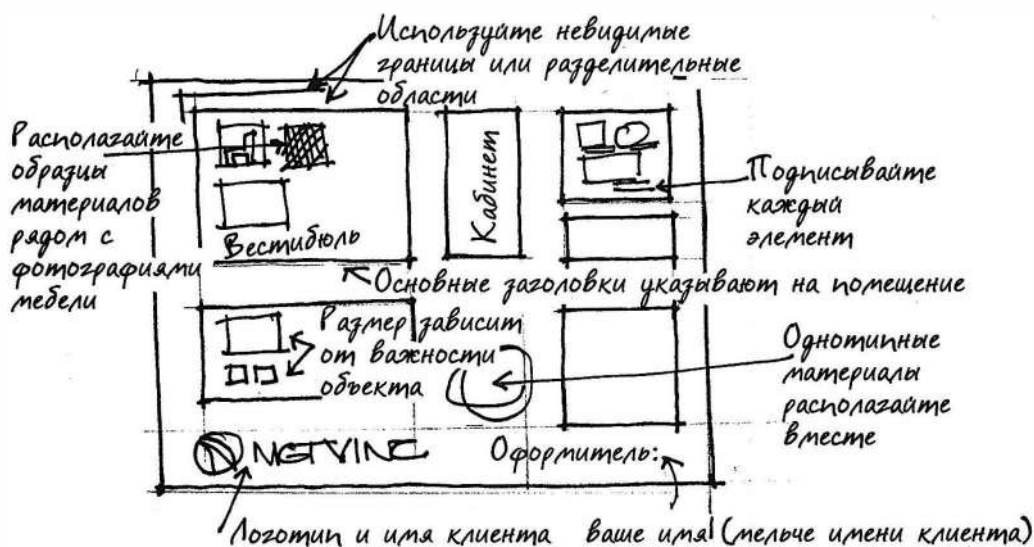 Используйте невидимые
границы или разделительные
области
Располагайте
образцы
материалов
рядом с
фотографиями
мебели
Вестибюль
Кабинет
Подписывайте
каждый
элемент
Основные заголовки указывают на помещение
Размер зависит
от важности
объекта
Однотипные
материалы
располагайте
вместе
Оформитель:
Логотип и имя клиента
ваше имя (мельче имени клиента)